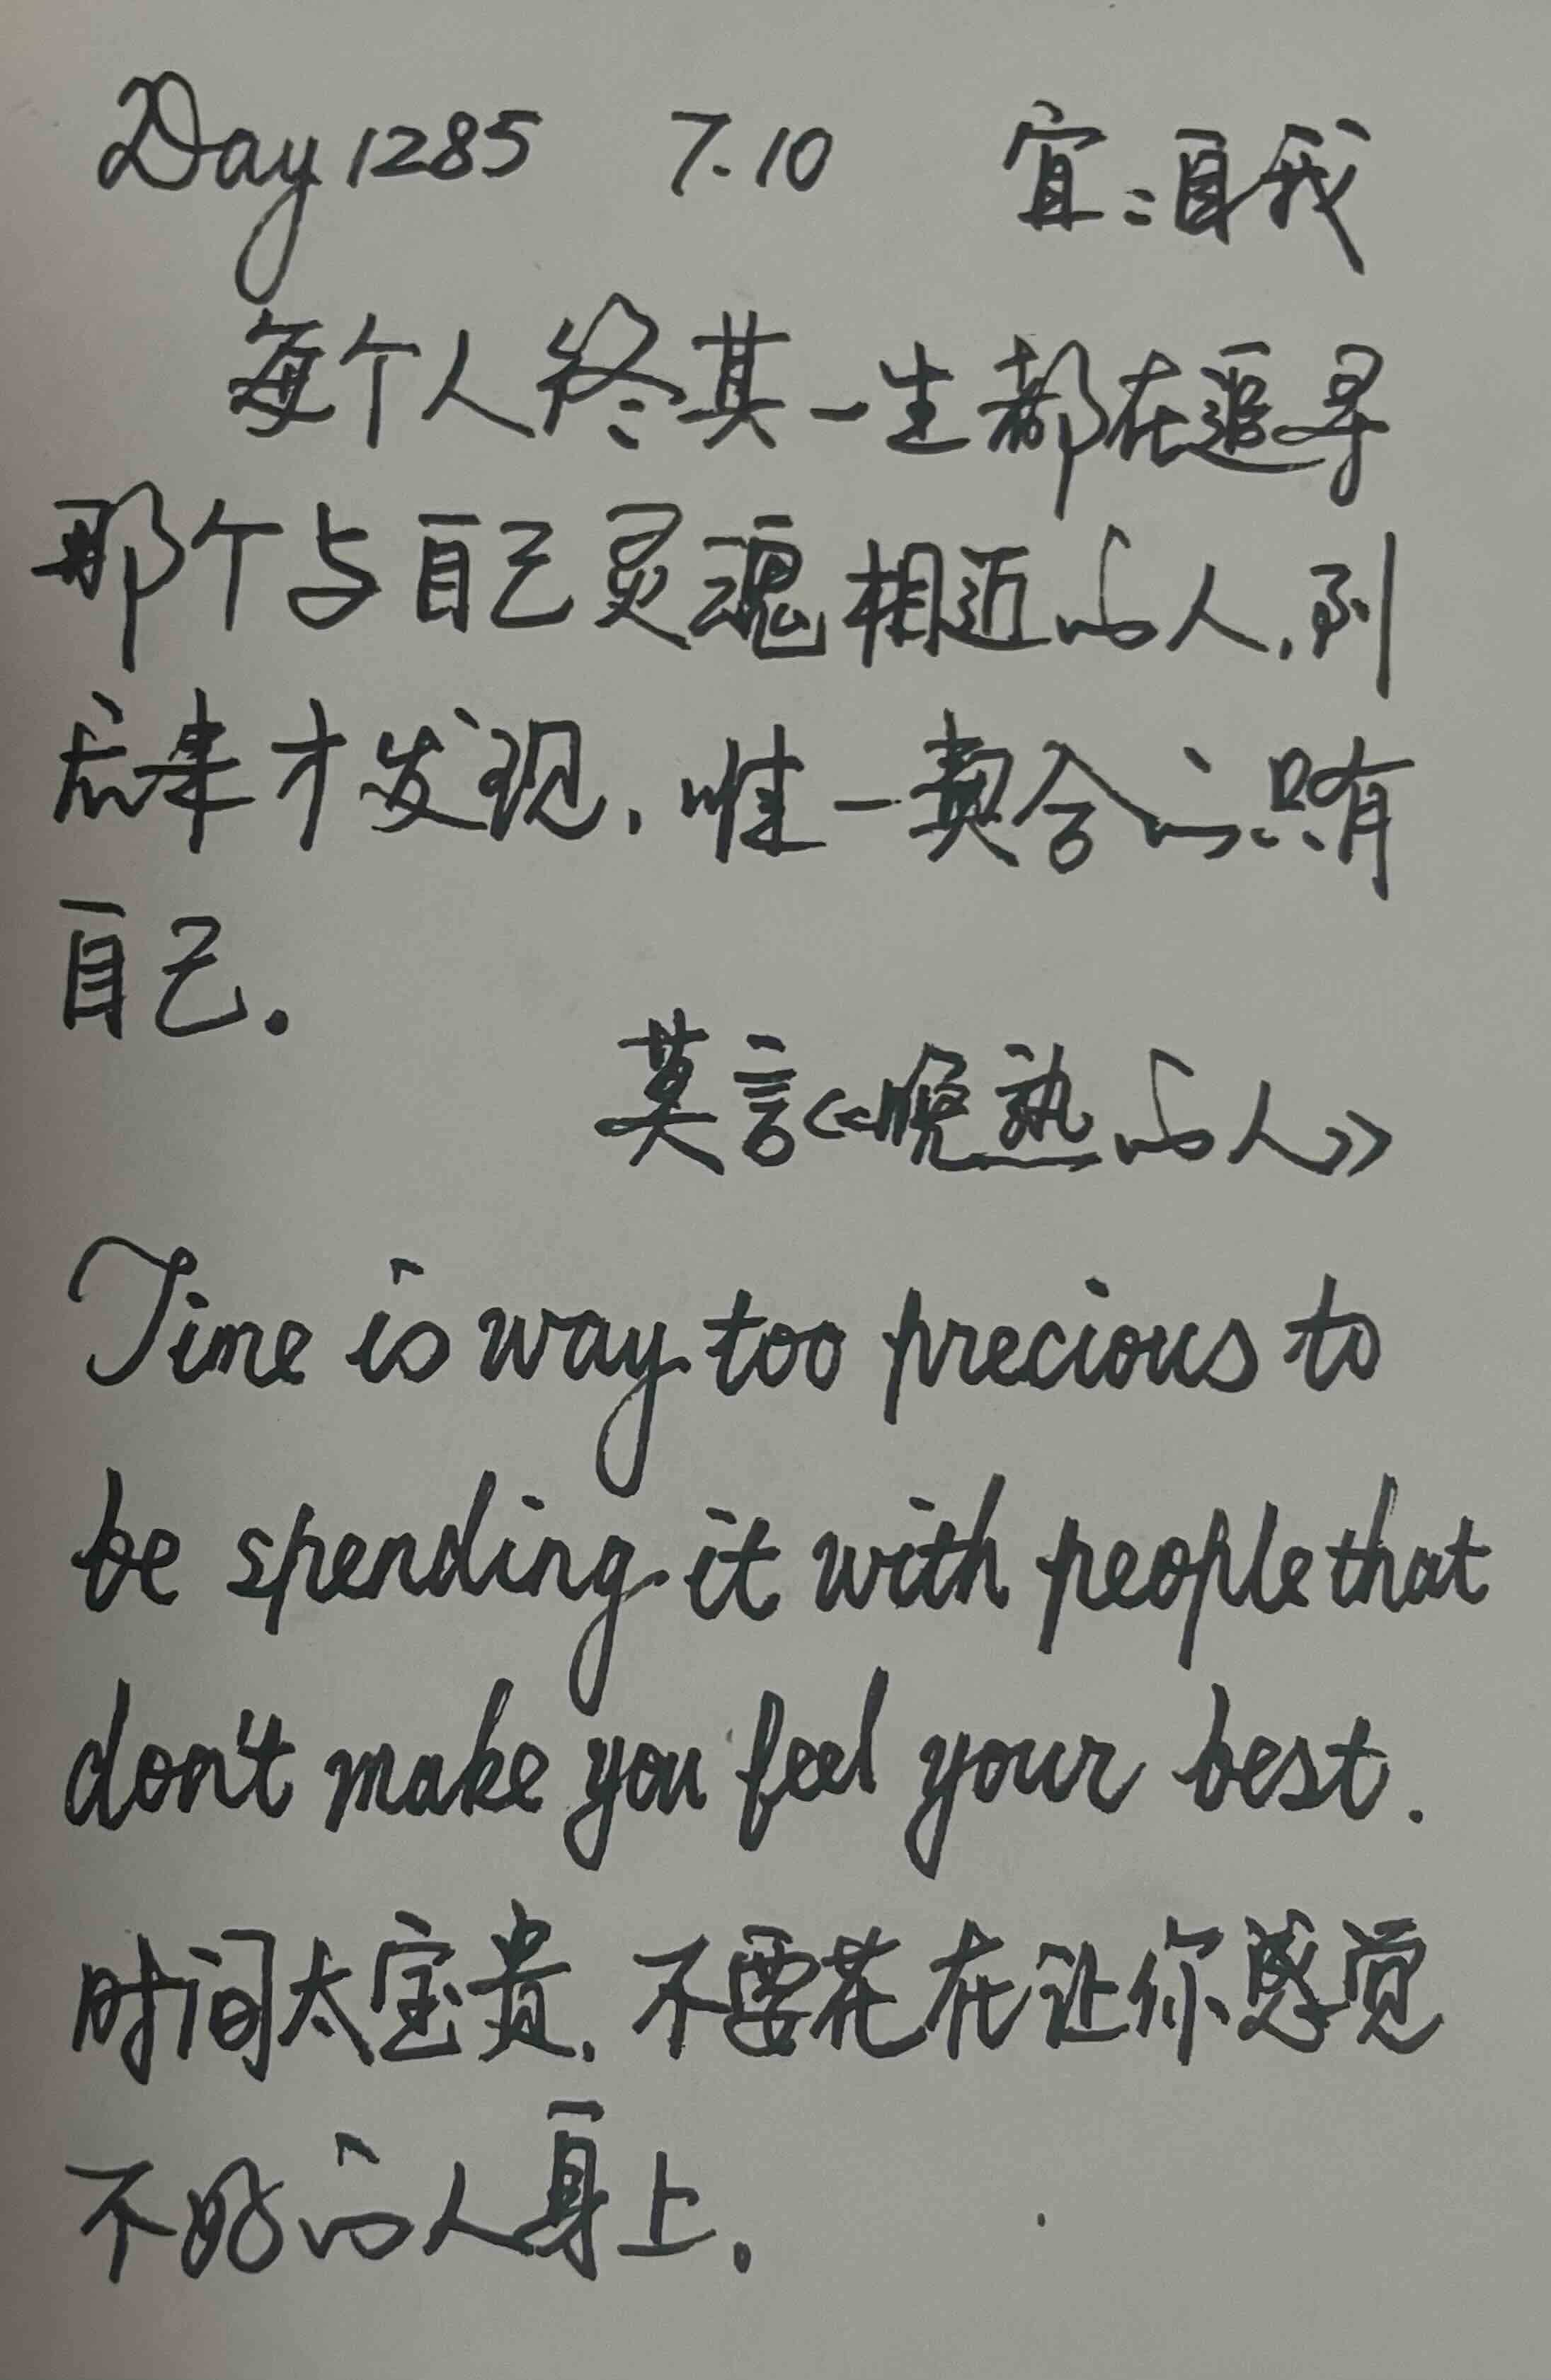 Day 1285 7.10 宜:自我
每个人终其一生都在追寻
那个与自己灵魂相近的人,到
后来才发现,唯一契合的只有
自己.
莫言《晚熟的人》
Time is way too precious to
be spending it with people that
don't make you feel your best.
时间太宝贵,不要花在让你感觉
不好的人身上.